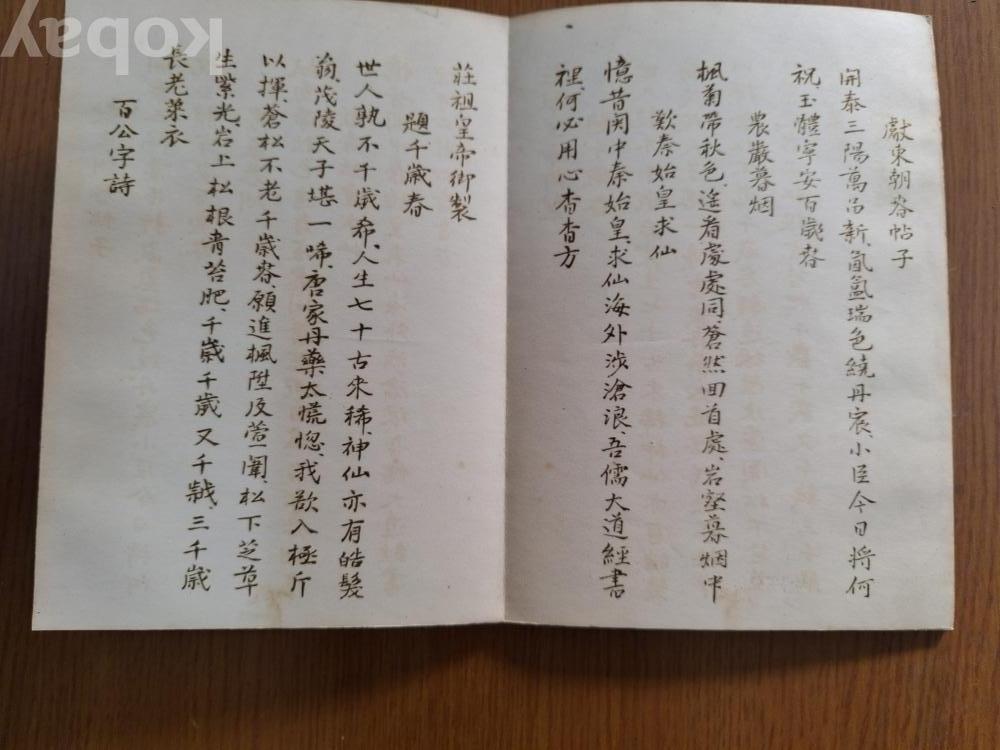 獻東朝春帖子
開泰三陽萬品新、氤氳瑞色繞丹宸、小臣今日將何
祝玉體寧安百歲春
農巖暮烟
楓菊帶秋色、遙看處處同、蒼然回首處、岩壑暮烟中
歎秦始皇求仙
憶昔関中秦始皇、求仙海外涉滄浪、吾儒大道經書
裡、何必用心杳杳方
莊祖皇帝御製
題千歲春
世人孰不千歲希、人生七十古來稀、神仙亦有皓髮
翁、茂陵天子堪一唏、唐家丹藥太慌惚、我欲入極斤
以揮、蒼松不老千歲春、願進楓陛及萱闈、松下芝草
生紫光、岩上松根青苔肥、千歲千歲又千歲、三千歲
長老萊衣
百公字詩
kobay